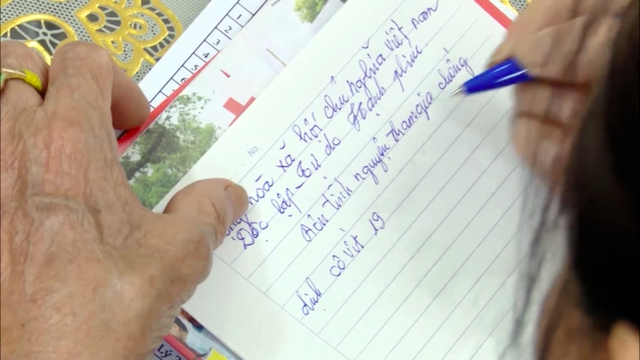 No
hòa xã hội chủ nghĩa việt nam
Độc lập - Tự do Hạnh phúc
Đơn tình nguyện tham gia chống
dịch cô vít 19
Lý